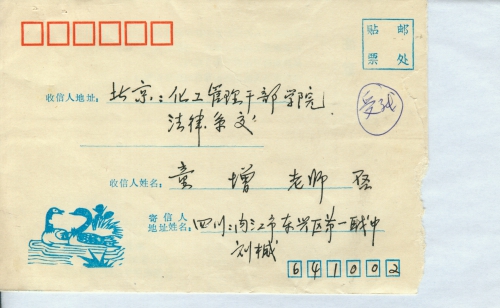 贴 邮
票 处
收信人地址: 北京:化工管理干部学院
法律系交
受伐
收信人姓名: 童 增 老师 启
寄信人
地址姓名: 四川:内江市东兴区第一职中
刘
641002